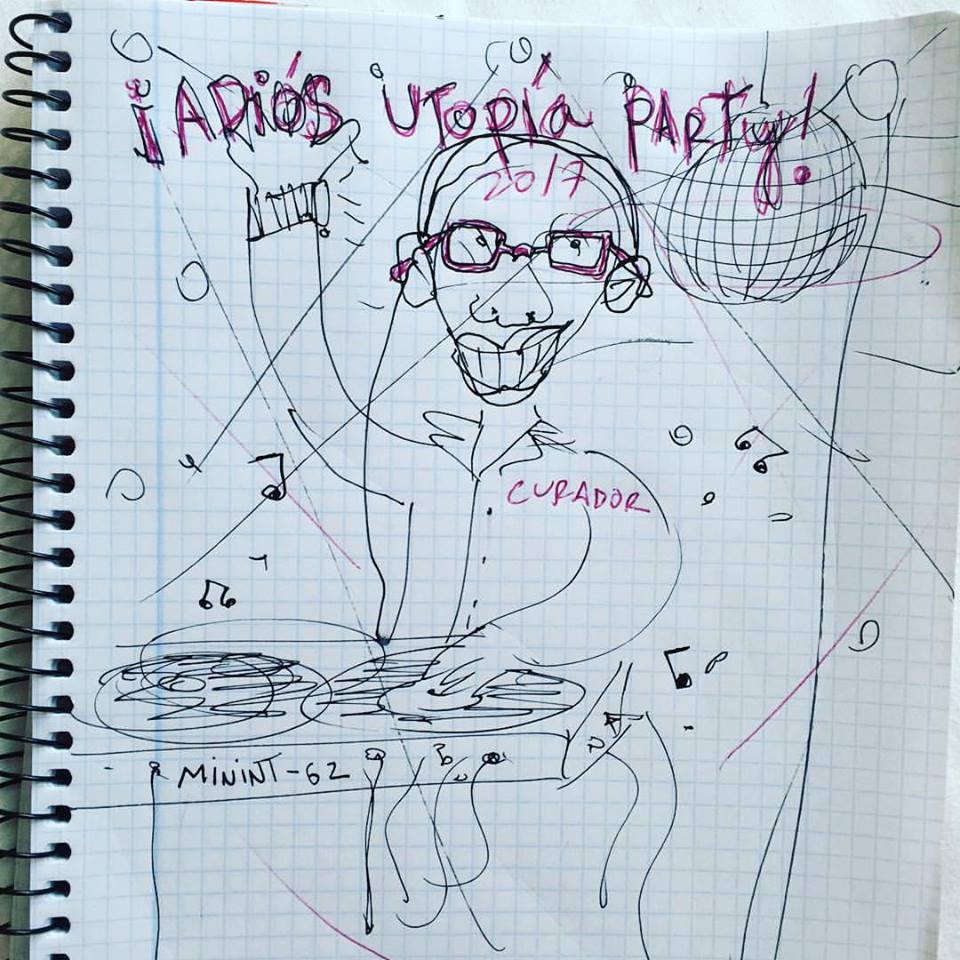 ¡ADióS UTopía PARTy!
2017
CURADOR
MiNiNT-62